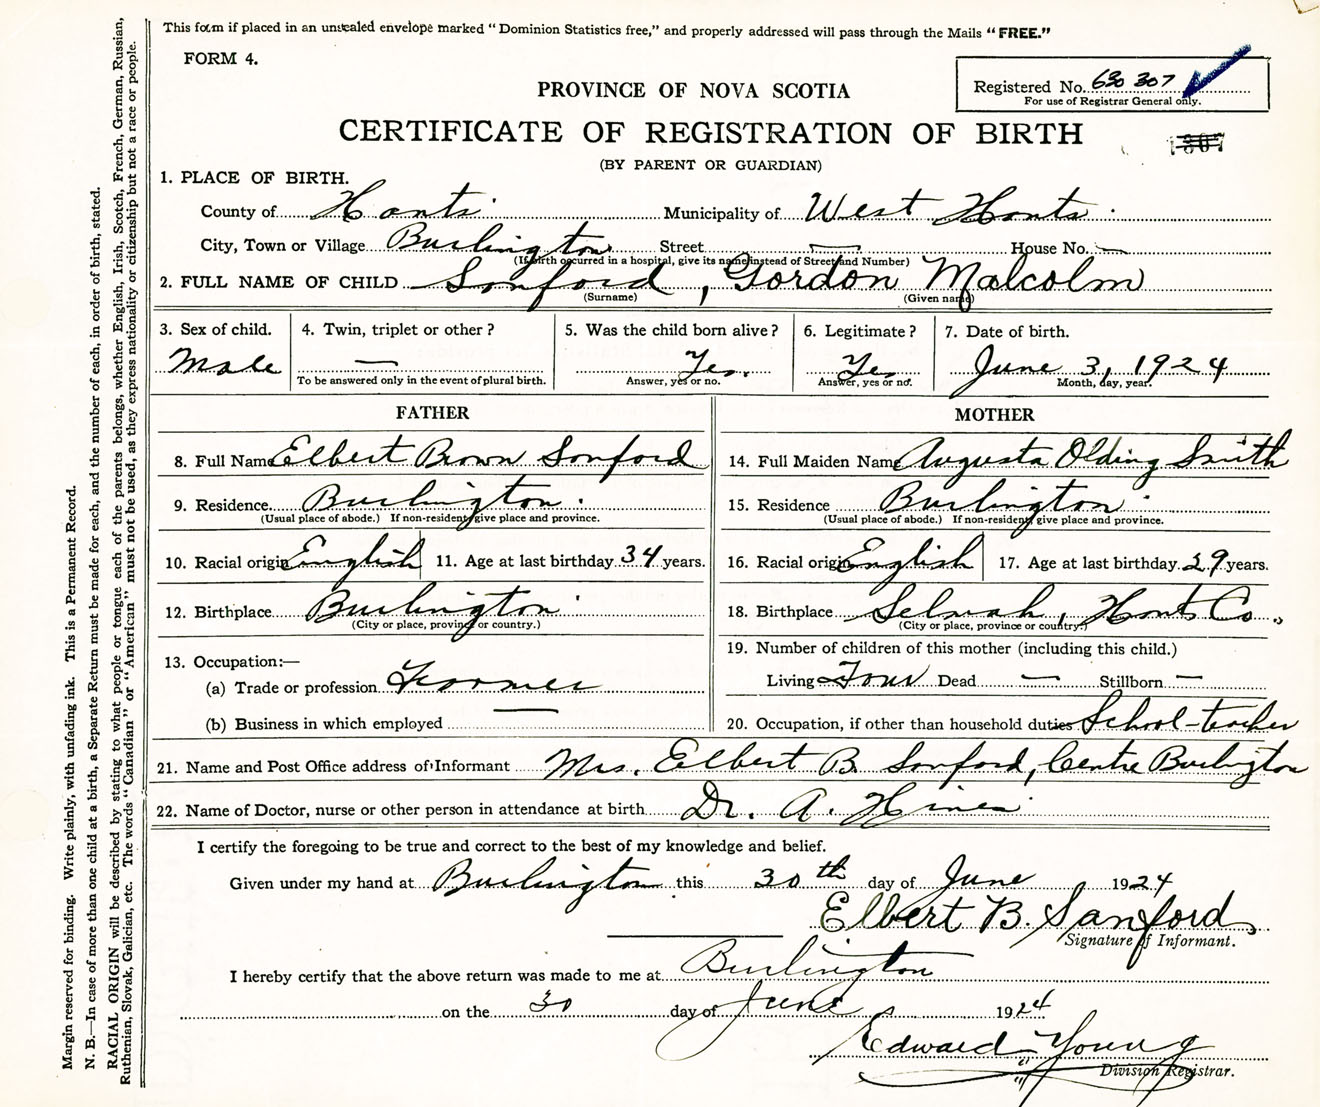 This form if placed in an unsealed envelope marked "Dominion Statistics free," and properly addressed will pass through the Mails "FREE."
FORM 4.
Registered No. 630 307
For use of Registrar General only.
PROVINCE OF NOVA SCOTIA
CERTIFICATE OF REGISTRATION OF BIRTH
(BY PARENT OR GUARDIAN)
1. PLACE OF BIRTH.
County of Hants Municipality of West Hants
City, Town or Village Burlington Street — House No. —
(If birth occurred in a hospital, give its name instead of Street and Number)
2. FULL NAME OF CHILD Sanford, Gordon Malcolm
(Surname) (Given name)
3. Sex of child. 4. Twin, triplet or other? 5. Was the child born alive? 6. Legitimate? 7. Date of birth.
Male — Yes. Yes June 3, 1924
To be answered only in the event of plural birth. Answer, yes or no. Answer, yes or no. Month, day, year.
FATHER MOTHER
8. Full Name Elbert Brown Sanford 14. Full Maiden Name Augusta Olding Smith
9. Residence Burlington. 15. Residence Burlington.
(Usual place of abode.) If non-resident, give place and province. (Usual place of abode.) If non-resident, give place and province.
10. Racial origin English 11. Age at last birthday 34 years. 16. Racial origin English 17. Age at last birthday 29 years.
12. Birthplace Burlington 18. Birthplace Selmah, Hants Co.,
(City or place, province or country.) (City or place, province or country.)
13. Occupation:— 19. Number of children of this mother (including this child.)
(a) Trade or profession Farmer Living Four Dead — Stillborn —
(b) Business in which employed — 20. Occupation, if other than household duties School-teacher
21. Name and Post Office address of Informant Mrs. Elbert B. Sanford, Centre Burlington
22. Name of Doctor, nurse or other person in attendance at birth Dr. A. Hines
I certify the foregoing to be true and correct to the best of my knowledge and belief.
Given under my hand at Burlington this 30th day of June 1924
Elbert B. Sanford,
Signature of Informant.
I hereby certify that the above return was made to me at Burlington
on the 30 day of June 1924
Edward Young
Division Registrar.
Margin reserved for binding. Write plainly, with unfading ink. This is a Permanent Record.
N. B.—In case of more than one child at a birth, a Separate Return must be made for each, and the number of each, in order of birth, stated.
RACIAL ORIGIN will be described by stating to what people or tongue each of the parents belongs, whether English, Irish, Scotch, French, German, Russian,
Ruthenian, Slovak, Galician, etc. The words "Canadian" or "American" must not be used, as they express nationality or citizenship but not a race or people.